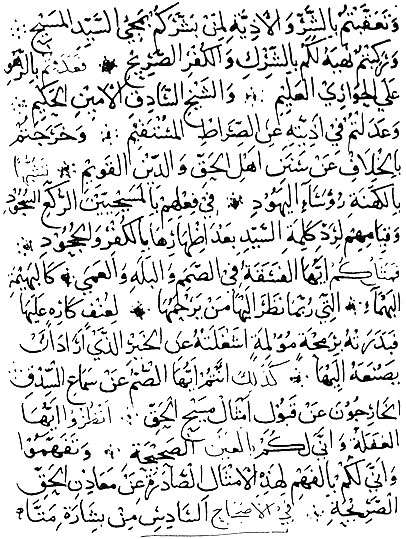 وتعقبتم بالشر والاذيه لمن بشركم بمجي السيد المسيح
وتركتم لهيه لكم بالشرك والكفر الصريح
علي الجوازي العليم والشيخ الصادق الامين الحكيم
وعدلتم في اذيته عن الصراط المستقيم وخرجتم
بالخلاف عن سنن اهل الحق والدين القويم
بالكهنة رؤساء اليهود في فعلهم بالمسيحيين الركع السجود
وقيامهم لرد كلمة السيد بعد اظهارها بالكفر والجحود
فمثلكم ايها الفسقة في الصمم والبله والعمي كالبهيمة
البهماء التي ربما نظر اليها من يرحمها لعنف كاره عليها
فبدرته برمحة مؤلمة اشغلته عن الخير الذي اراد اك
يصنعه اليها كذلك انتم ايها الصم عن سماع الصدق
الخارجون عن قبول امثال مسيح الحق انظروا ايها
الغفلة واني لكم بالعين الصحيحة وتفهموا
واني لكم بالفهم لهذه الامثال الصادرة عن معادن الحق
الصريحة في الاصحاح السادس من بشارة متا